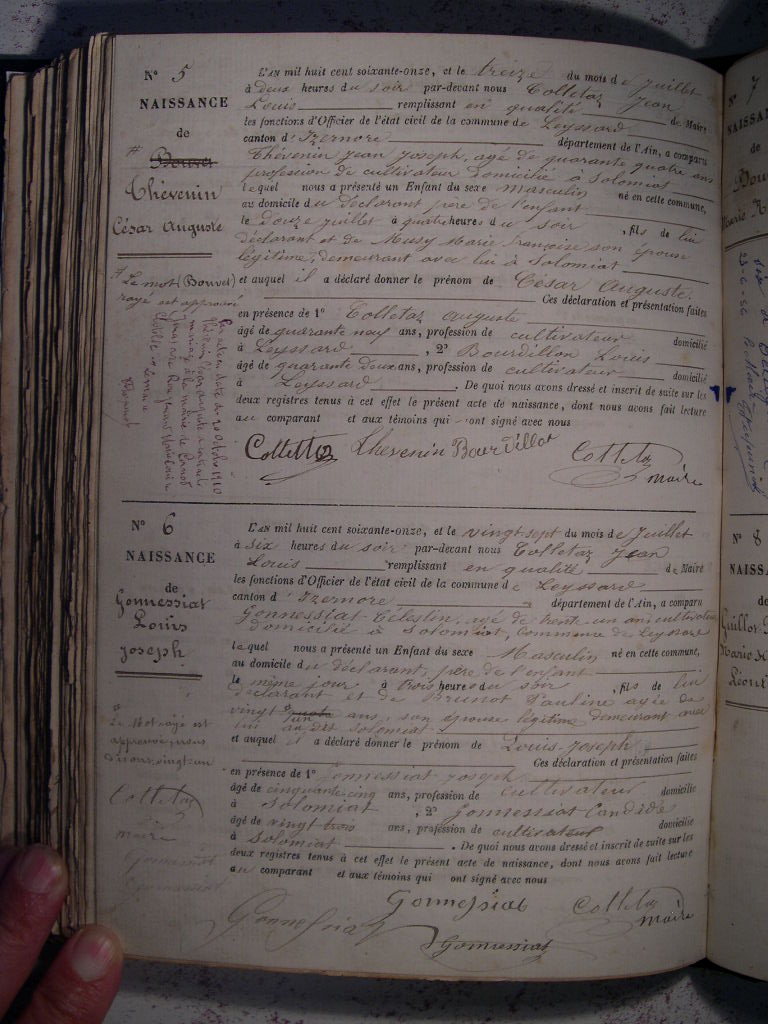 N° 5
NAISSANCE
de
Bouvet
Thévenin
César Auguste
Le mot (Bouvet)
rayé est approuvé
L'AN mil huit cent soixante-onze, et le treize du mois de juillet
à deux heures du soir par-devant nous Colletaz Jean
Louis remplissant en qualité de Maire
les fonctions d'Officier de l'état civil de la commune de Leyssard
canton d'Izernore département de l'Ain, a comparu
Thévenin Jean Joseph, agé de quarante quatre ans
profession de cultivateur domicilié à Solomiat
lequel nous a présenté un Enfant du sexe masculin né en cette commune,
au domicile du déclarant père de l'enfant
le douze juillet à quatre heures du soir, fils de lui
déclarant et de Musy Marie françoise son épouse
légitime, demeurant avec lui à Solomiat
et auquel il a déclaré donner le prénom de César Auguste.
Ces déclaration et présentation faites
en présence de 1° Colletaz Auguste
âgé de quarante neuf ans, profession de cultivateur domicilié
à Leyssard, 2° Bourdillon Louis
âgé de quarante deux ans, profession de cultivateur domicilié
à Leyssard. De quoi nous avons dressé et inscrit de suite sur les
deux registres tenus à cet effet le présent acte de naissance, dont nous avons fait lecture
au comparant et aux témoins qui ont signé avec nous
Collettaz Thevenin Bourdillot Colletaz
maire
N° 6
NAISSANCE
de
Gonnessiat
Louis
Joseph
Le Mot rayé est
approuvé, nous
disons, vingt-un
Colletaz
maire
Gonnessiat
Gonnessiat
L'AN mil huit cent soixante-onze, et le vingt sept du mois de Juillet
à six heures du soir par-devant nous Colletaz Jean
Louis remplissant en qualité de Maire
les fonctions d'Officier de l'état civil de la commune de Leyssard
canton d'Izernore département de l'Ain, a comparu
Gonnessiat Célestin, agé de trente un ans cultivateur
domicilié à Solomiat, commune de Leyssard
lequel nous a présenté un Enfant du sexe Masculin né en cette commune,
au domicile du déclarant, père de l'enfant
le même jour à trois heures du soir, fils de lui
déclarant et de Brunot Pauline agée de
vingt un ans, son épouse légitime demeurant avec
lui au dit Solomiat
et auquel il a déclaré donner le prénom de Louis-Joseph
Ces déclaration et présentation faites
en présence de 1° Gonnessiat Joseph
âgé de cinquante-cinq ans, profession de cultivateur domicilié
à Solomiat, 2° Gonnessiat Candide
âgé de vingt trois ans, profession de cultivateur domicilié
à Solomiat. De quoi nous avons dressé et inscrit de suite sur les
deux registres tenus à cet effet le présent acte de naissance, dont nous avons fait lecture
au comparant et aux témoins qui ont signé avec nous
Gonnessiat Colletaz
maire
Gonnessiat
Gonnessiat
N° 7
NAISSANCE
de
N° 8
NAISSANCE
de